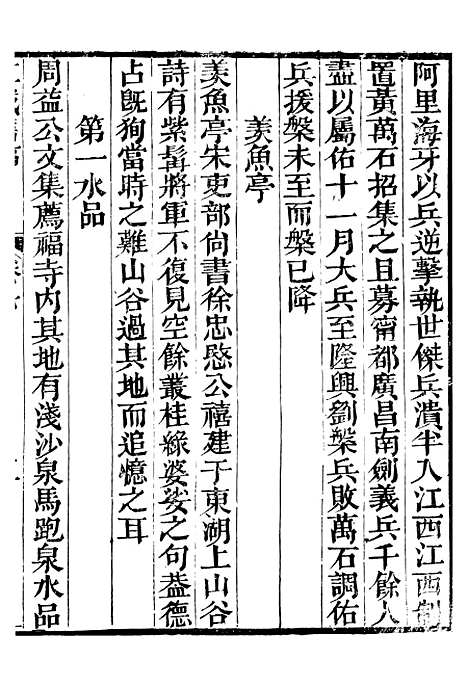 阿里海牙以兵逆擊執世傑兵潰半入江西江西制
置黃萬石招集之且募甯都廣昌南劍義兵千餘人
盡以屬佑十一月大兵至隆興劉槃兵敗萬石調佑
兵援槃未至而槃已降
羙魚亭
羙魚亭宋吏部尚書徐忠愍公禧建于東湖上山谷
詩有紫髯將軍不復見空餘叢桂綠婆娑之句葢德
占旣殉當時之難山谷過其地而追憶之耳
第一水品
周益公文集薦福寺内其地有淺沙泉馬跑泉水品